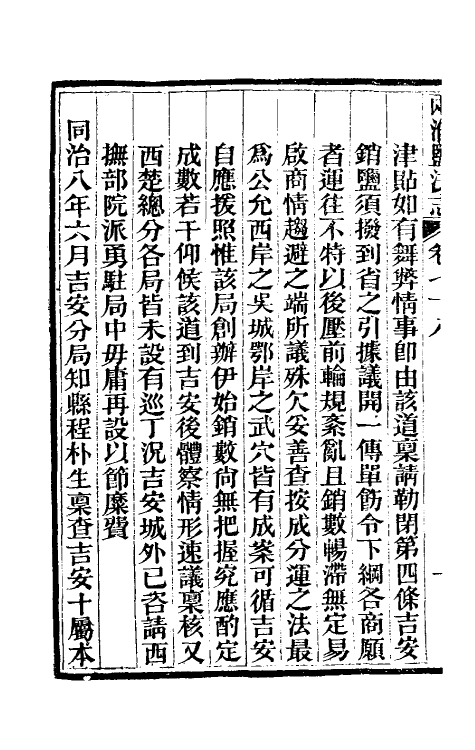 兩淮鹽法志 卷七十八
津貼如有舞弊情事卽由該道稟請勒閉第四條吉安
銷鹽須撥到省之引據議開一傳單飭令下綱各商願
者運往不特以後壓前輪規紊亂且銷數暢滯無定易
啟商情趨避之端所議殊欠妥善查按成分運之法最
爲公允西岸之吳城鄂岸之武穴皆有成案可循吉安
自應援照惟該局創辦伊始銷數尙無把握究應酌定
成數若干仰候該道到吉安後體察情形速議稟核又
西楚總分各局皆未設有巡丁況吉安城外已咨請西
撫部院派勇駐局中毋庸再設以節糜費
同治八年六月吉安分局知縣程朴生稟查吉安十屬本